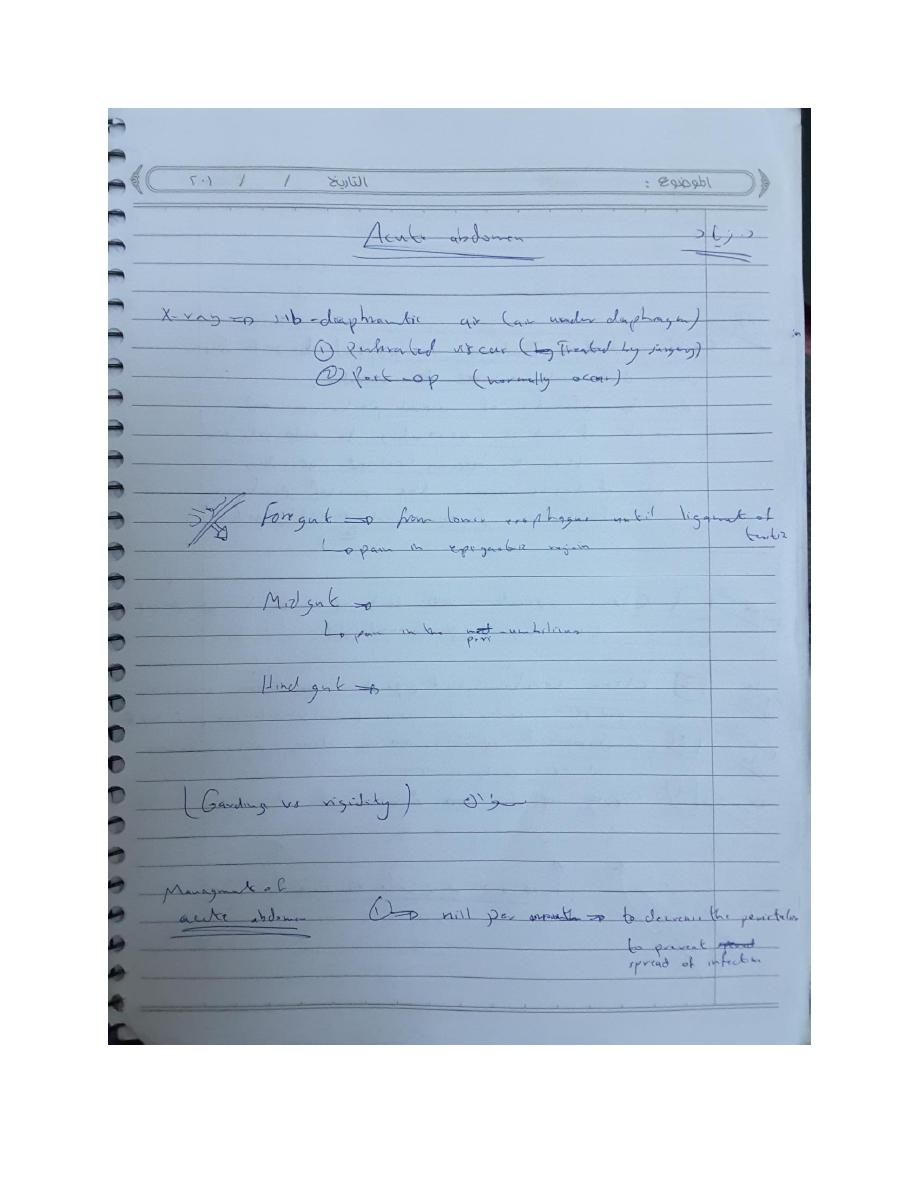 الموضوع : التاريخ / / ٢٠١
Acute abdomen د. زياد
X-ray => sub-diaphramtic air (air under diaphragm)
① perforated viscus (Treated by surgery)
② Post-op (normally occur)
Foregut => from lower esophagus until ligament of
teritz
↳ pain in epigastric regoin
Midgut =>
↳ pain in the peri-umbilicus
Hind gut =>
(Garding vs rigidity) سؤال
Managment of
acute abdomen ① => nill per mouth => to decrease the peristalsis
to prevent
spread of infection